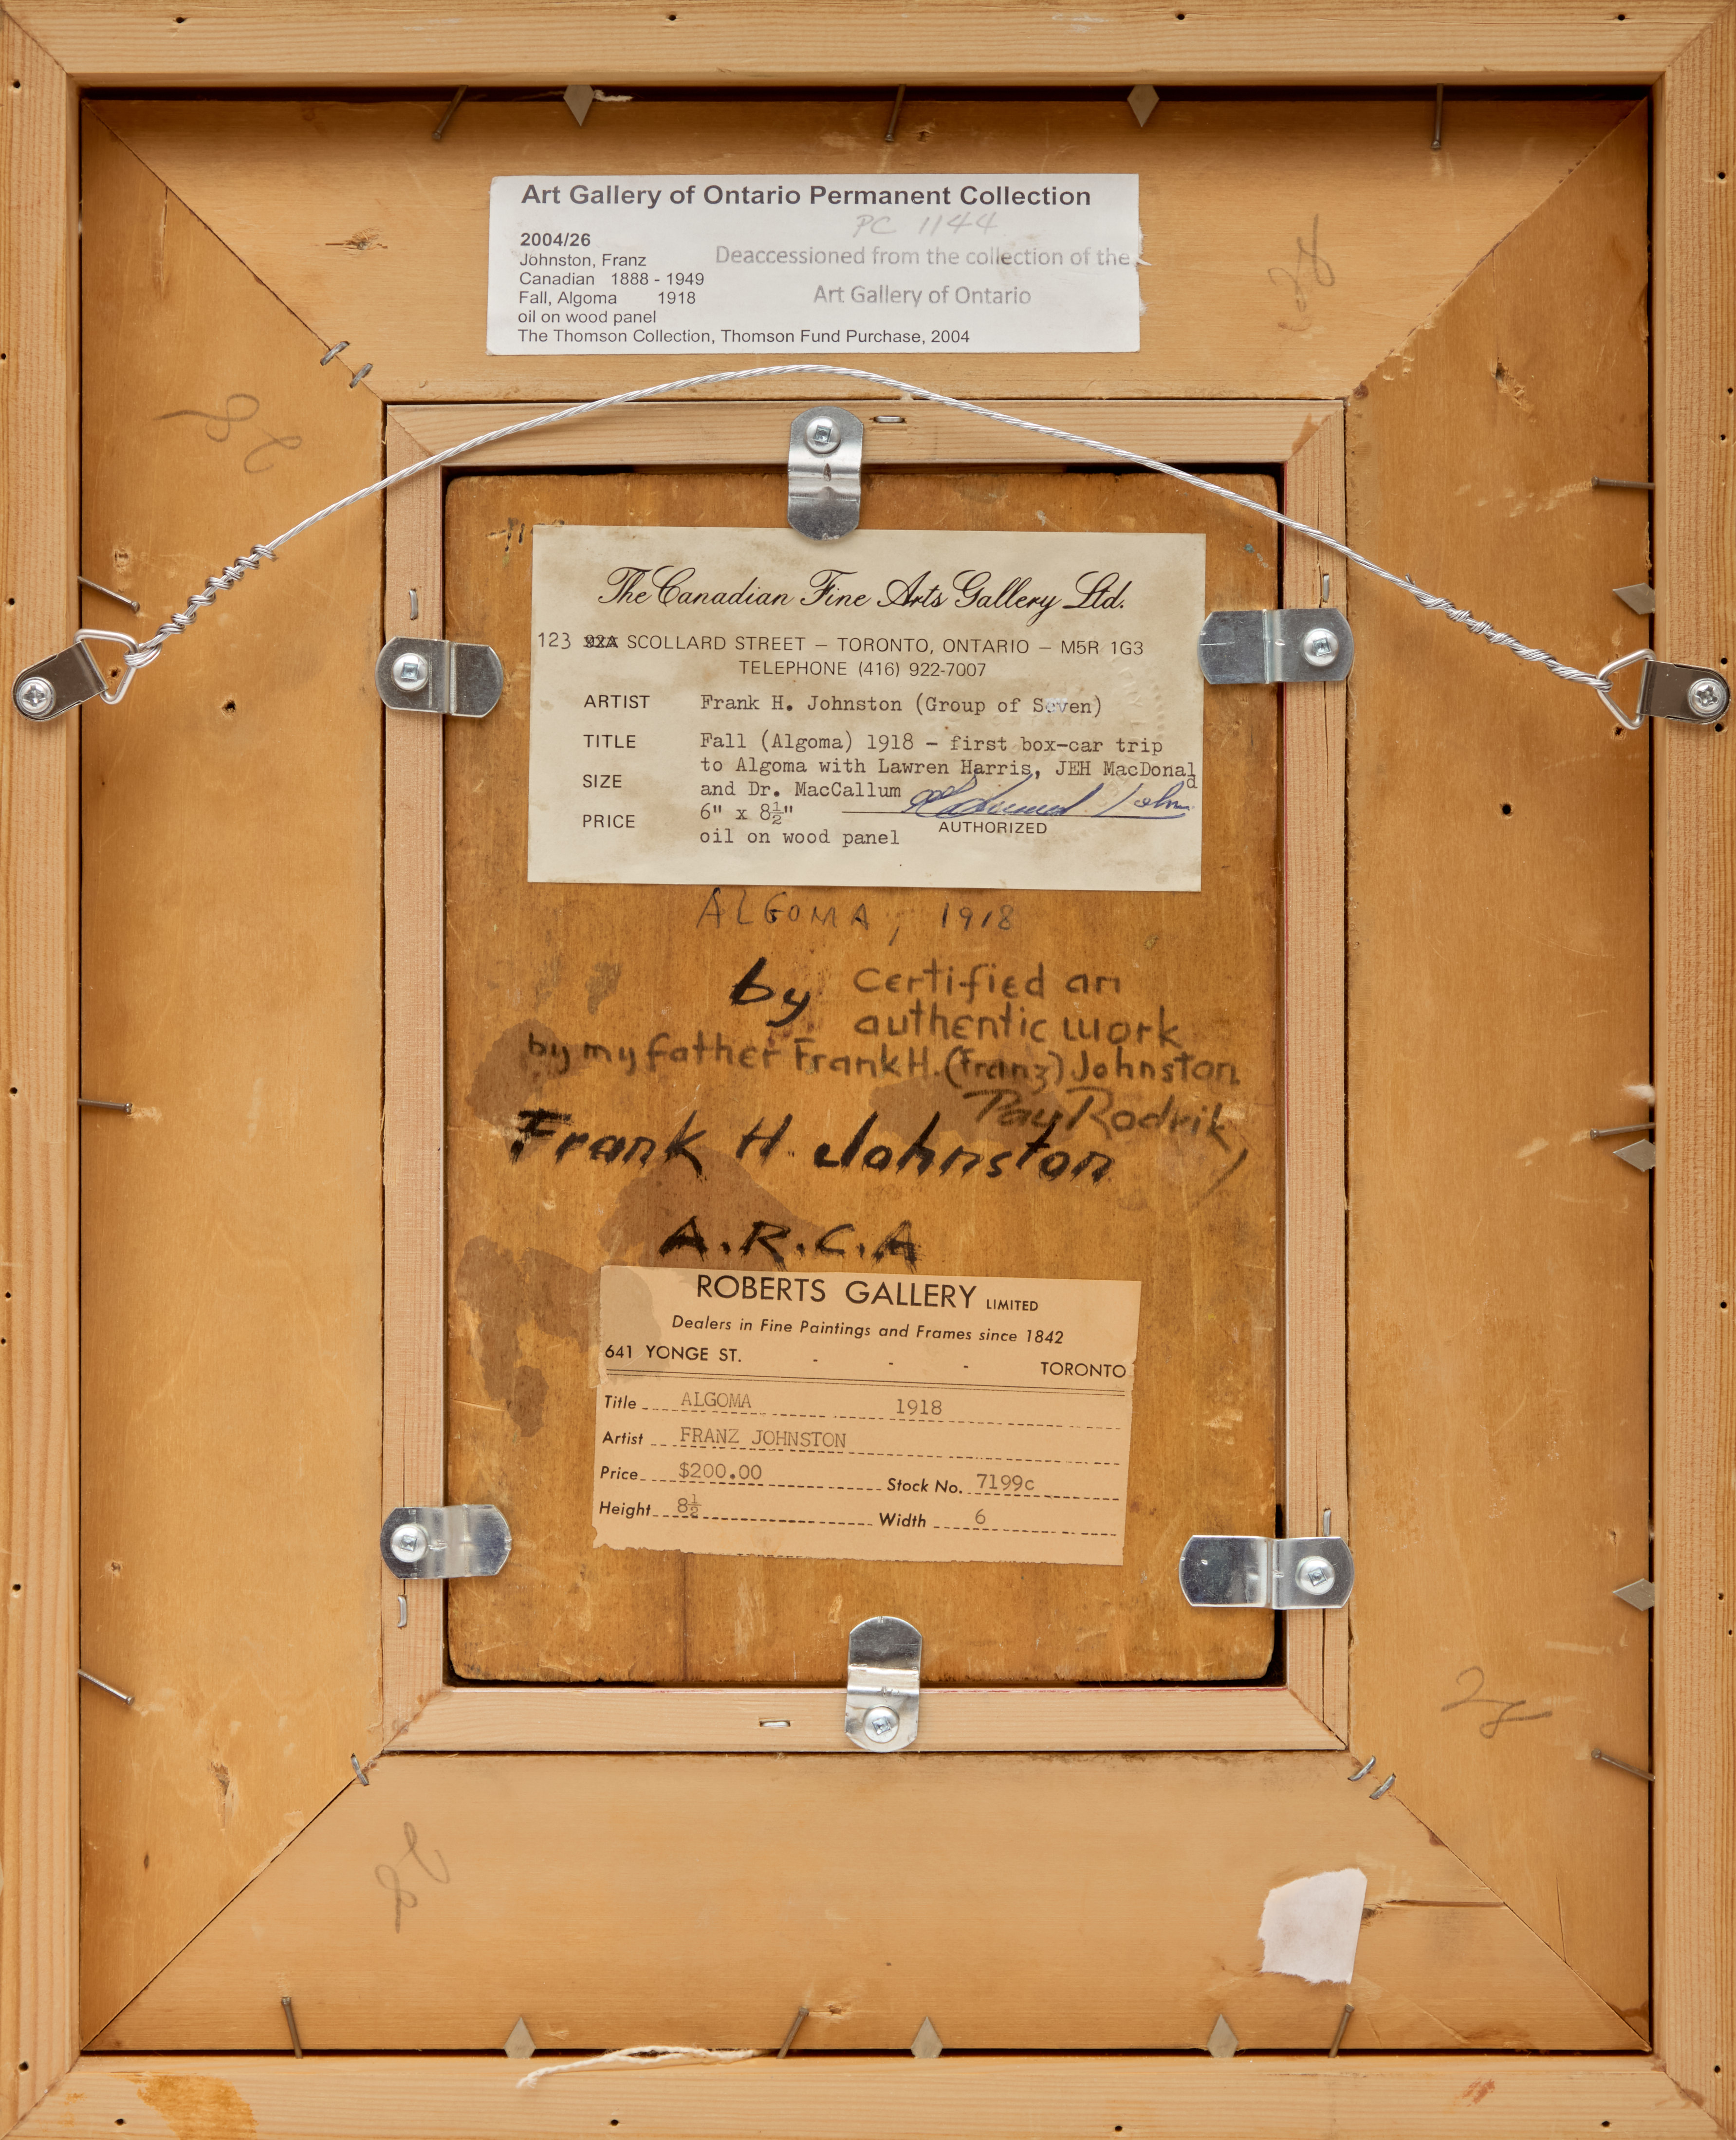 Art Gallery of Ontario Permanent Collection
PC 1144
2004/26
Johnston, Franz
Canadian 1888 - 1949
Fall, Algoma 1918
oil on wood panel
The Thomson Collection, Thomson Fund Purchase, 2004
Deaccessioned from the collection of the
Art Gallery of Ontario
28
28
The Canadian Fine Arts Gallery Ltd.
123 92A SCOLLARD STREET – TORONTO, ONTARIO – M5R 1G3
TELEPHONE (416) 922-7007
ARTIST Frank H. Johnston (Group of Seven)
TITLE Fall (Algoma) 1918 - first box-car trip
to Algoma with Lawren Harris, JEH MacDonald
SIZE and Dr. MacCallum
6" x 8½"
PRICE oil on wood panel
AUTHORIZED
ALGOMA, 1918
by
Certified an
authentic work
by my father Frank H. (Franz) Johnston
Frank H. Johnston
A.R.C.A
ROBERTS GALLERY LIMITED
Dealers in Fine Paintings and Frames since 1842
641 YONGE ST. - - - TORONTO
Title ALGOMA 1918
Artist FRANZ JOHNSTON
Price $200.00 Stock No. 7199c
Height 8½ Width 6
28
28